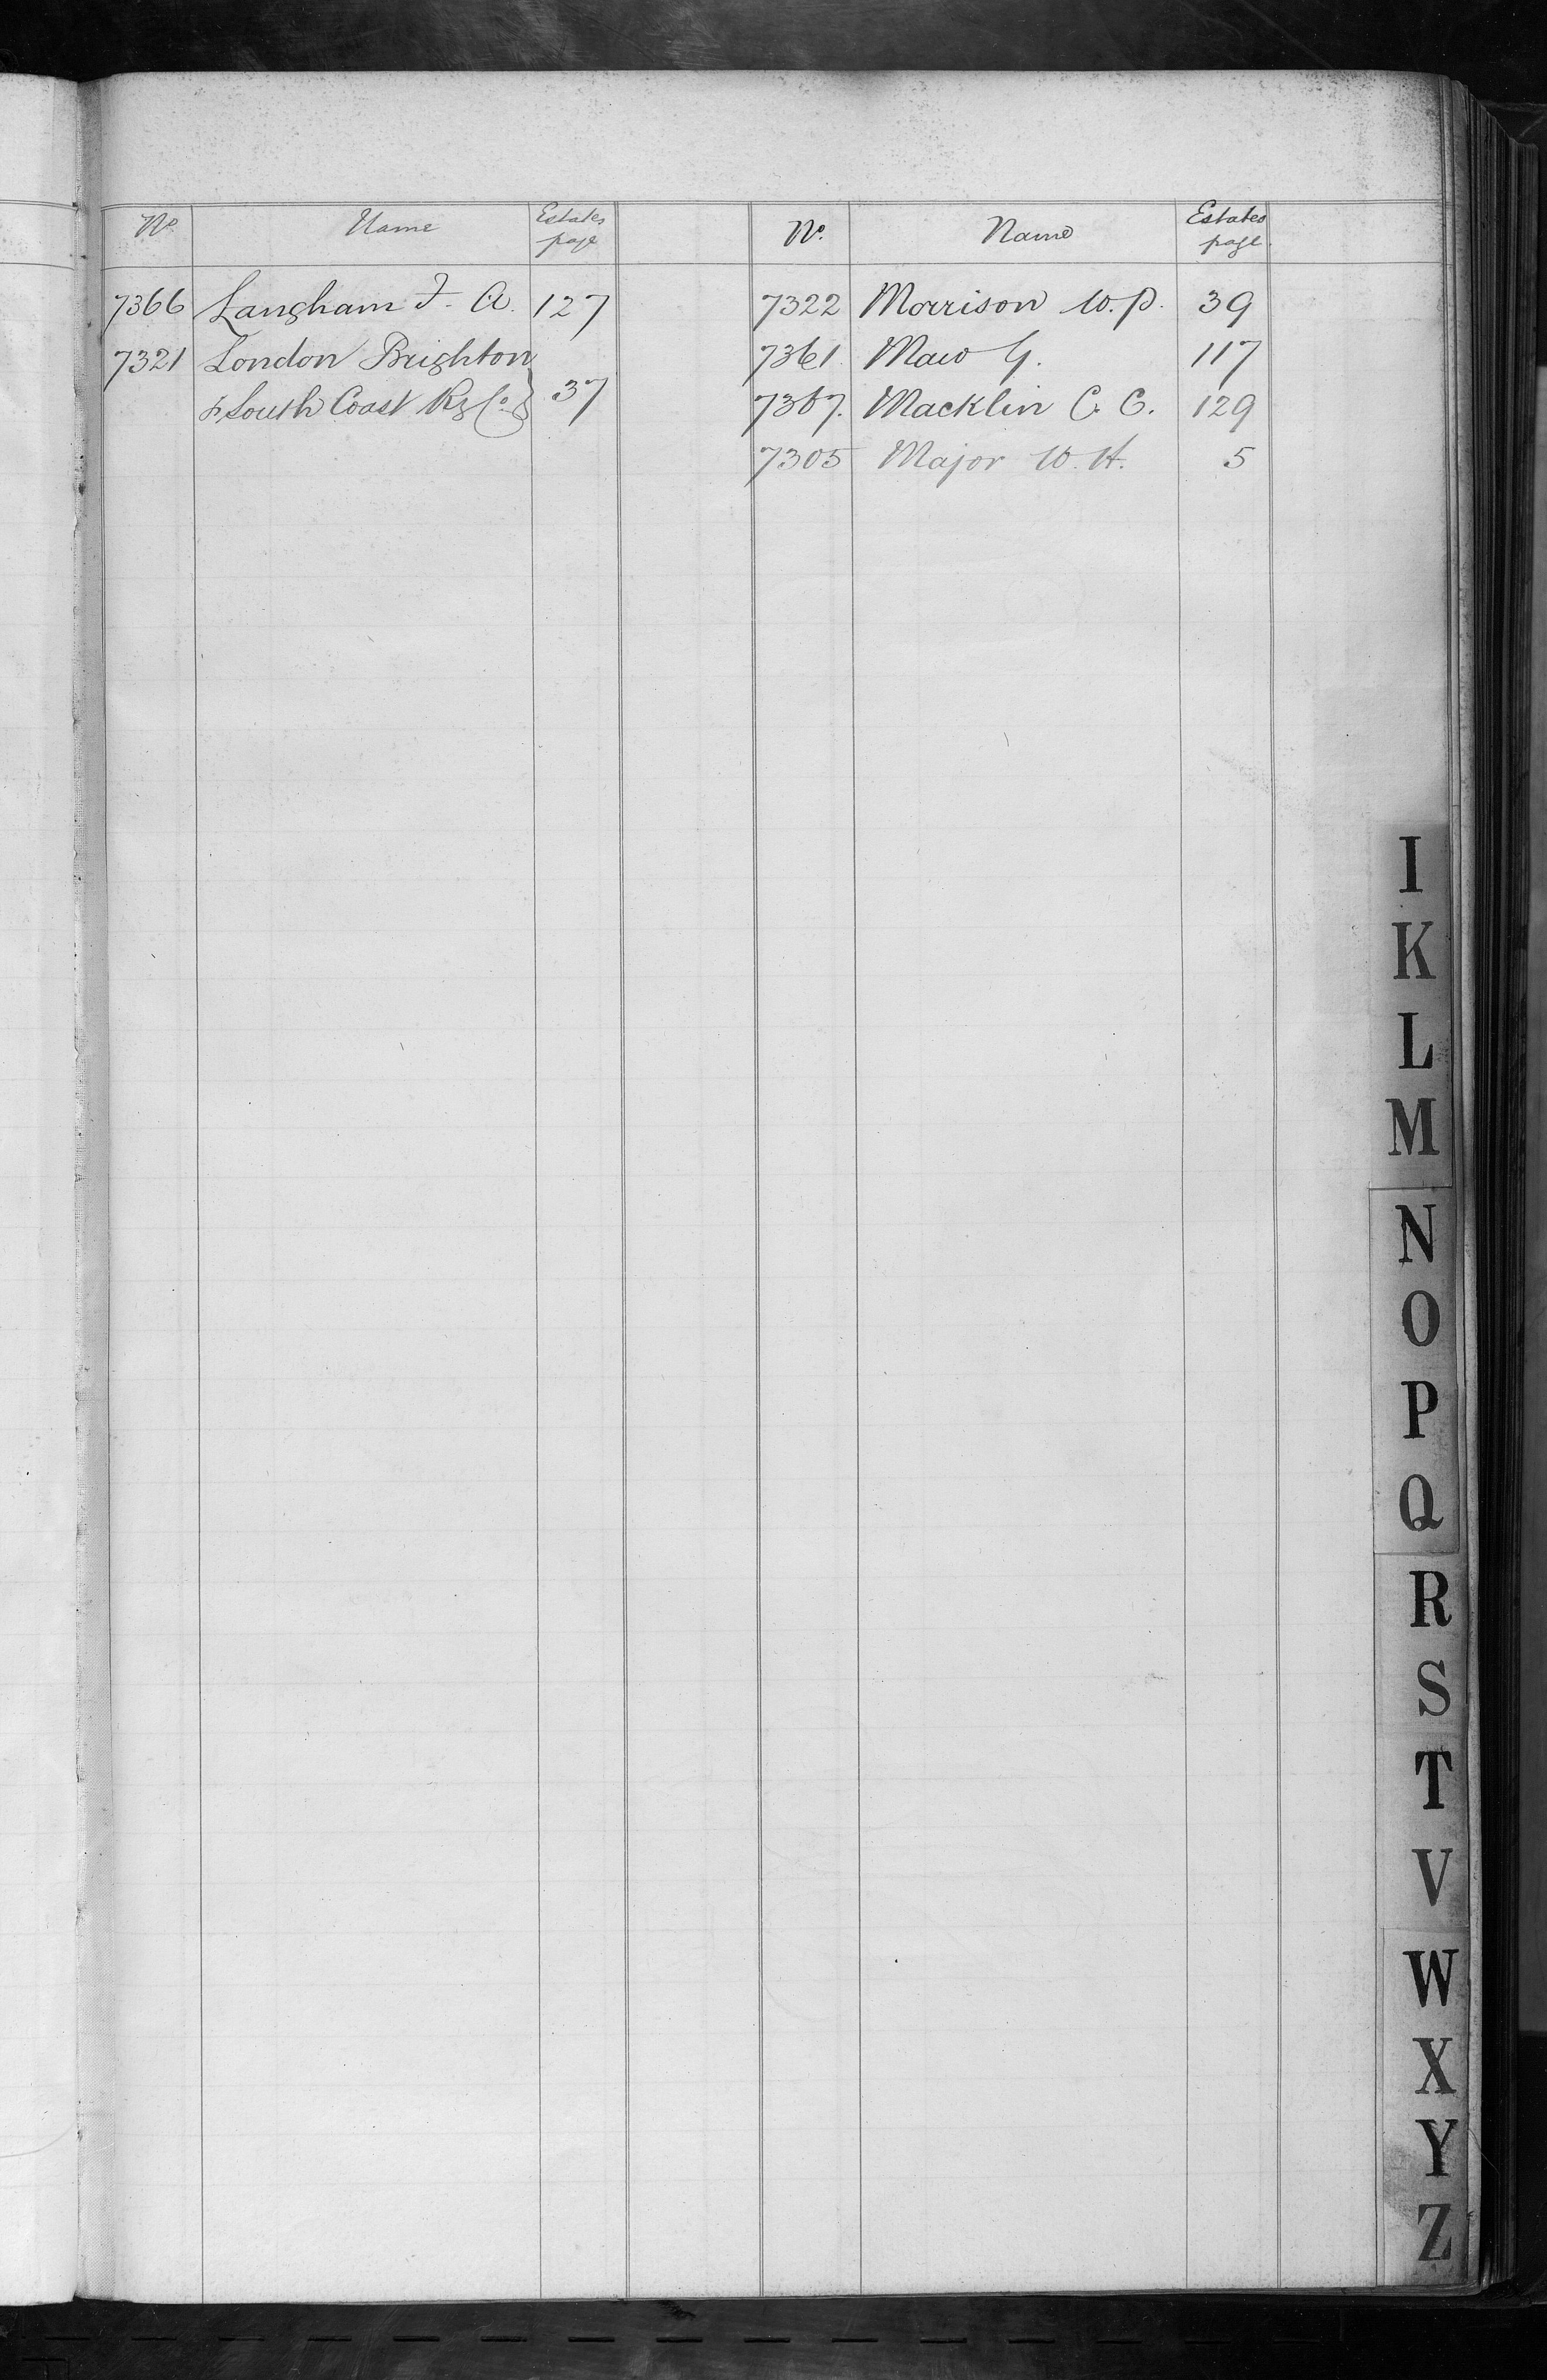 No. Name Estates page
7366 Langham F. A. 127
7321 London Brighton
& South Coast Ry Co. } 37
No. Name Estates page
7322 Morrison W. P. 39
7361 Maw G. 117
7367. Macklin C. C. 129
7305 Major W. H. 5
I
K
L
M
N
O
P
Q
R
S
T
V
W
X
Y
Z